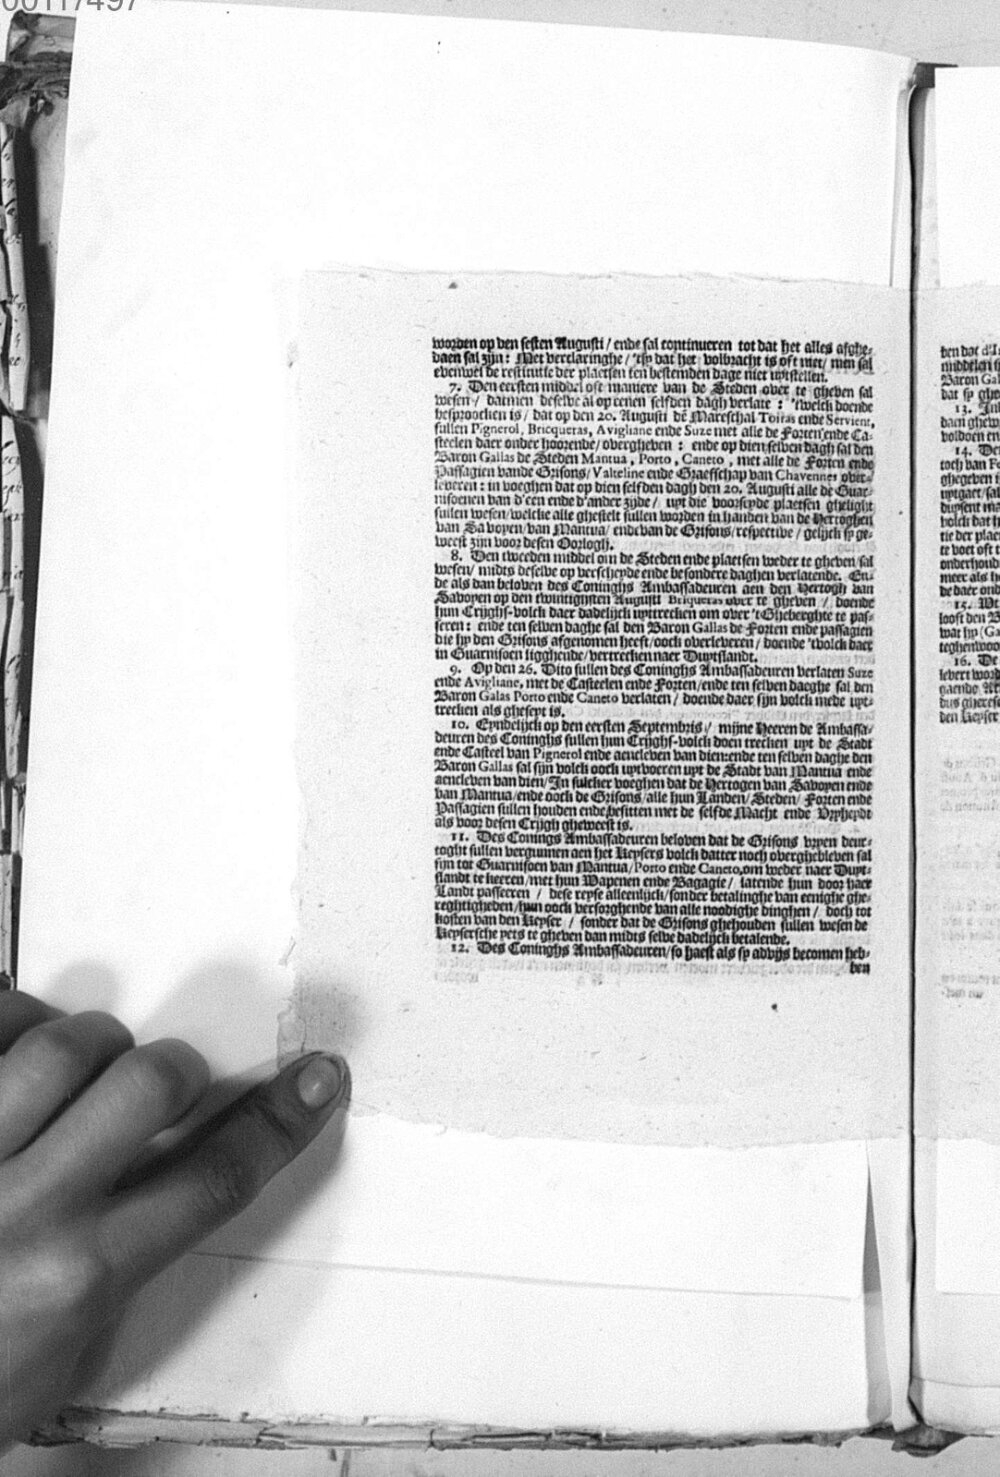 00117497
worden op den sesten Augusti / ende sal continueren tot dat het alles afghe-
daen sal zijn: Met verclaringhe / 'tsy dat het volbracht is oft niet / men sal
evenwel de restitutie der plaetsen ten bestemden dage niet uytstellen.
7. Den eersten middel oft maniere van de Steden over te gheven sal
wesen / datmen deselve al op eenen selfden dagh verlate : 'twelck doende
besproocken is / dat op den 20. Augusti dē Mareschal Toiras ende Servient,
sullen Pignerol, Bricqueras, Avigliane ende Suze met alle de Forten ende Ca-
steelen daer onder hoorende / overgheven : ende op dien selven dagh sal den
Baron Gallas de Steden Mantua, Porto, Caneto, met alle de Forten ende
Passagien vande Grisons / Valteline ende Graefschap van Chavennes over-
leveren: in voeghen dat op dien selfden dagh den 20. Augusti alle de Guar-
nisoenen van d'een ende d'ander zijde / uyt die voorseyde plaetsen ghelight
sullen wesen / welcke alle ghestelt sullen worden in handen van de Hertoghen
van Savoyen / van Mantua / ende van de Grisons / respective / gelijck sy ge-
weest zijn voor desen Oorlogh.
8. Den tweeden middel om de Steden ende plaetsen weder te gheven / sal
wesen / midts deselve op verscheyde ende besondere daghen verlatende. En-
de als dan beloven des Coninghs Ambassadeuren aen den Hertogh van
Savoyen op den twintighsten Augusti Briqueras over te gheven / doende
hun Crijghs-volck daer dadelijck uyttrecken om over 't Gheberghte te pas-
seren: ende ten selven daghe sal den Baron Gallas de Forten ende passagien
die hy den Grisons afgenomen heeft / oock overleveren / doende 'tvolck daer
in Guarnisoen ligghende / vertrecken naer Duytslandt.
9. Op den 26. Dito sullen des Coninghs Ambassadeuren verlaten Suze
ende Avigliane, met de Casteelen ende Forten / ende ten selven daeghe sal den
Baron Galas Porto ende Caneto verlaten / doende daer sijn volck mede uyt-
trecken als gheseyt is.
10. Eyndelijck op den eersten Septembris / mijne Heeren de Ambassa-
deuren des Coninghs sullen hun Crijghs-volck doen trecken uyt de Stadt
ende Casteel van Pignerol ende aencleven van dien: ende ten selven daghe den
Baron Gallas sal sijn volck oock uytvoeren uyt de Stadt van Mantua ende
aencleven van dien / In sulcker voeghen dat de Hertogen van Savoyen ende
van Mantua / ende oock de Grisons / alle hun Landen / Steden / Forten ende
Passagien sullen houden ende besitten met de selfde Macht ende Vryheydt
als voor desen Crijgh gheweest is.
11. Des Conings Ambassadeuren beloven dat de Grisons vryen deur-
toght sullen vergunnen aen het Keysers volck datter noch overghebleven sal
sijn tot Guarnisoen van Mantua / Porto ende Caneto, om weder naer Duyt-
slandt te keeren / met hun Wapenen ende Bagagie / latende hun door haer
Landt passeeren / dese reyse alleenlijck / sonder betalinghe van eenighe ghe-
reghtigheden / hun oock versorghende van alle noodighe dinghen / doch tot
kosten van den Keyser / sonder dat de Grisons ghehouden sullen wesen de
Keysersche yets te gheven dan midts selve dadelijck betalende.
12. Des Coninghs Ambassadeuren / so haest als sy advijs becomen heb-
ben
ben dat d'I
middelen
Baron Gal
dat sy ghe
13. Inb
dam ghew
voldoen en
14. Der
toch van Fe
ghegeven
uytgaet / sal
duysent ma
volck dat
tie der plaet
te voet oft
onderhoud
meer als h
de daer ond
15. Wt
looft den B
wat hy (Ga
teghenwoo
16. De
levert word
gaende Ar
dus gherese
den Keyser